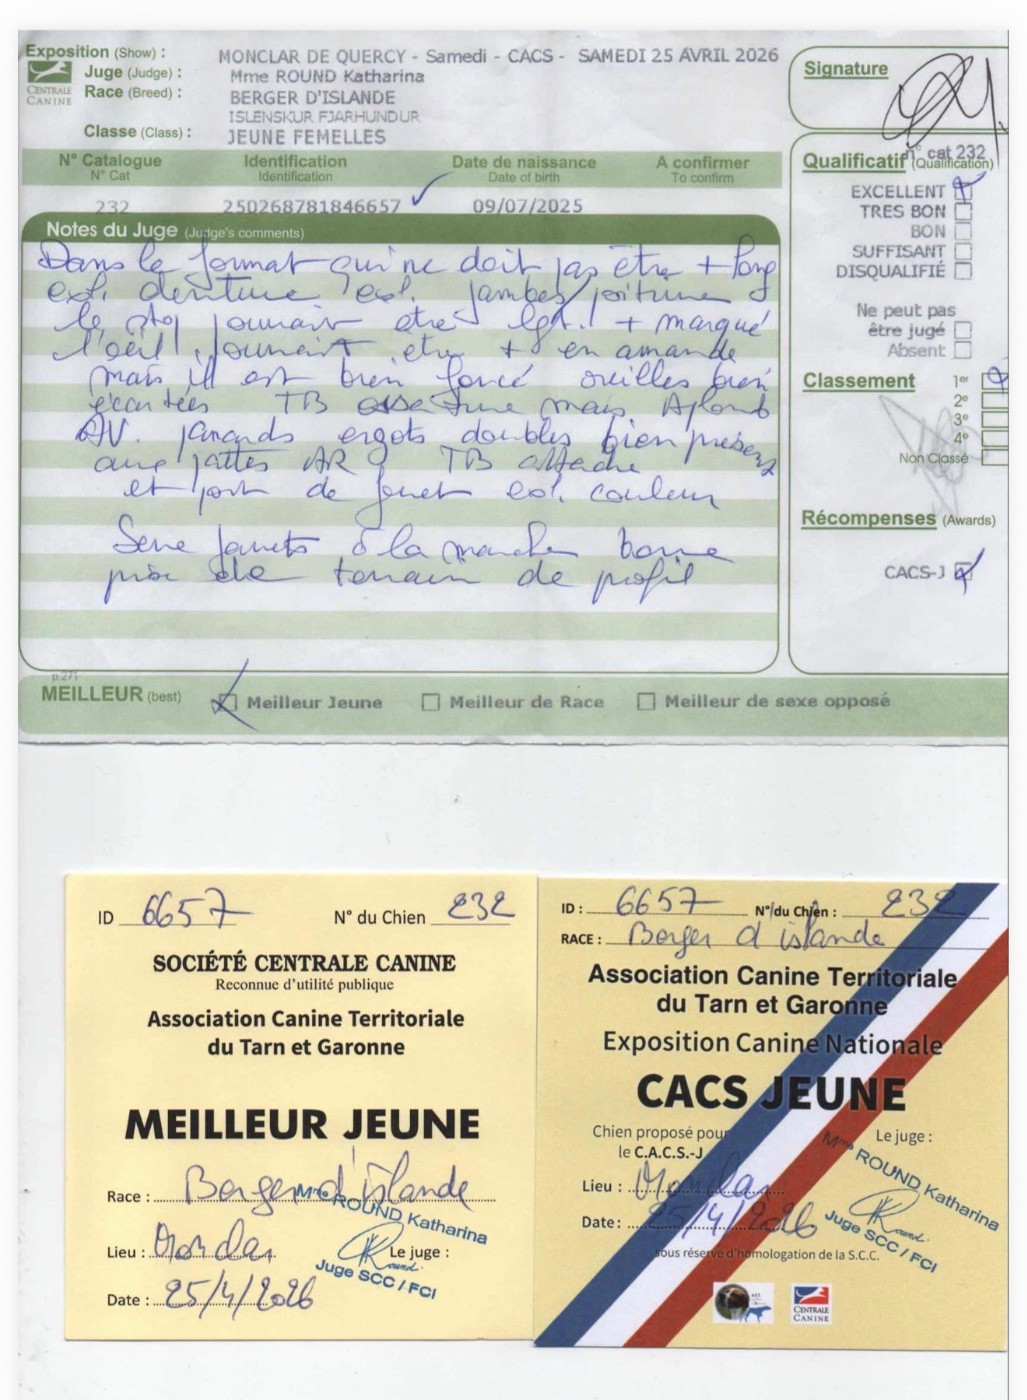 Exposition (Show) : MONCLAR DE QUERCY - Samedi - CACS - SAMEDI 25 AVRIL 2026
Juge (Judge) : Mme ROUND Katharina
Race (Breed) : BERGER D'ISLANDE
ISLENSKUR FJARHUNDUR
CENTRALE
CANINE
Classe (Class) : JEUNE FEMELLES
N° Catalogue Identification Date de naissance A confirmer
N° Cat Identification Date of birth To confirm
232 250268781846657 09/07/2025
Notes du Juge (Judge's comments)
Dans le format qui ne doit pas être + long
exl. denture exl. jambes/poitrine
le stop pourrait etre lgt. + marqué
l'oeil pourrait etre + en amande
mais il est bien foncé oreilles bien
écartées TB ossature mais Aplomb
AV. panards ergots doubles bien présents
aux pattes AR TB attache
et port de fouet exl. couleur
Serre jarrets à la marche bonne
prise de terrain de profil
p.271
MEILLEUR (best) Meilleur Jeune Meilleur de Race Meilleur de sexe opposé
Signature
Qualificatif (Qualification)
n° cat 232
EXCELLENT
TRES BON
BON
SUFFISANT
DISQUALIFIÉ
Ne peut pas
être jugé
Absent
Classement 1er
2e
3e
4e
Non Classé
Récompenses (Awards)
CACS-J
ID 6657 N° du Chien 232
SOCIÉTÉ CENTRALE CANINE
Reconnue d'utilité publique
Association Canine Territoriale
du Tarn et Garonne
MEILLEUR JEUNE
Race : Berger d'islande
Mme ROUND Katharina
Lieu : Monclar Le juge :
Juge SCC / FCI
Date : 25/4/2026
ID : 6657 N° du Chien : 232
RACE : Berger d'islande
Association Canine Territoriale
du Tarn et Garonne
Exposition Canine Nationale
CACS JEUNE
Chien proposé pour Le juge :
le C.A.C.S.-J
Mme ROUND Katharina
Lieu : Monclar
Date : 25/4/2026
Juge SCC / FCI
sous réserve d'homologation de la S.C.C.
CENTRALE
CANINE